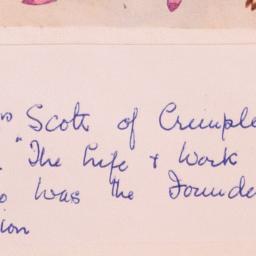 rs Scott of Crimple
"The Life & Work
o was the Founde
ion